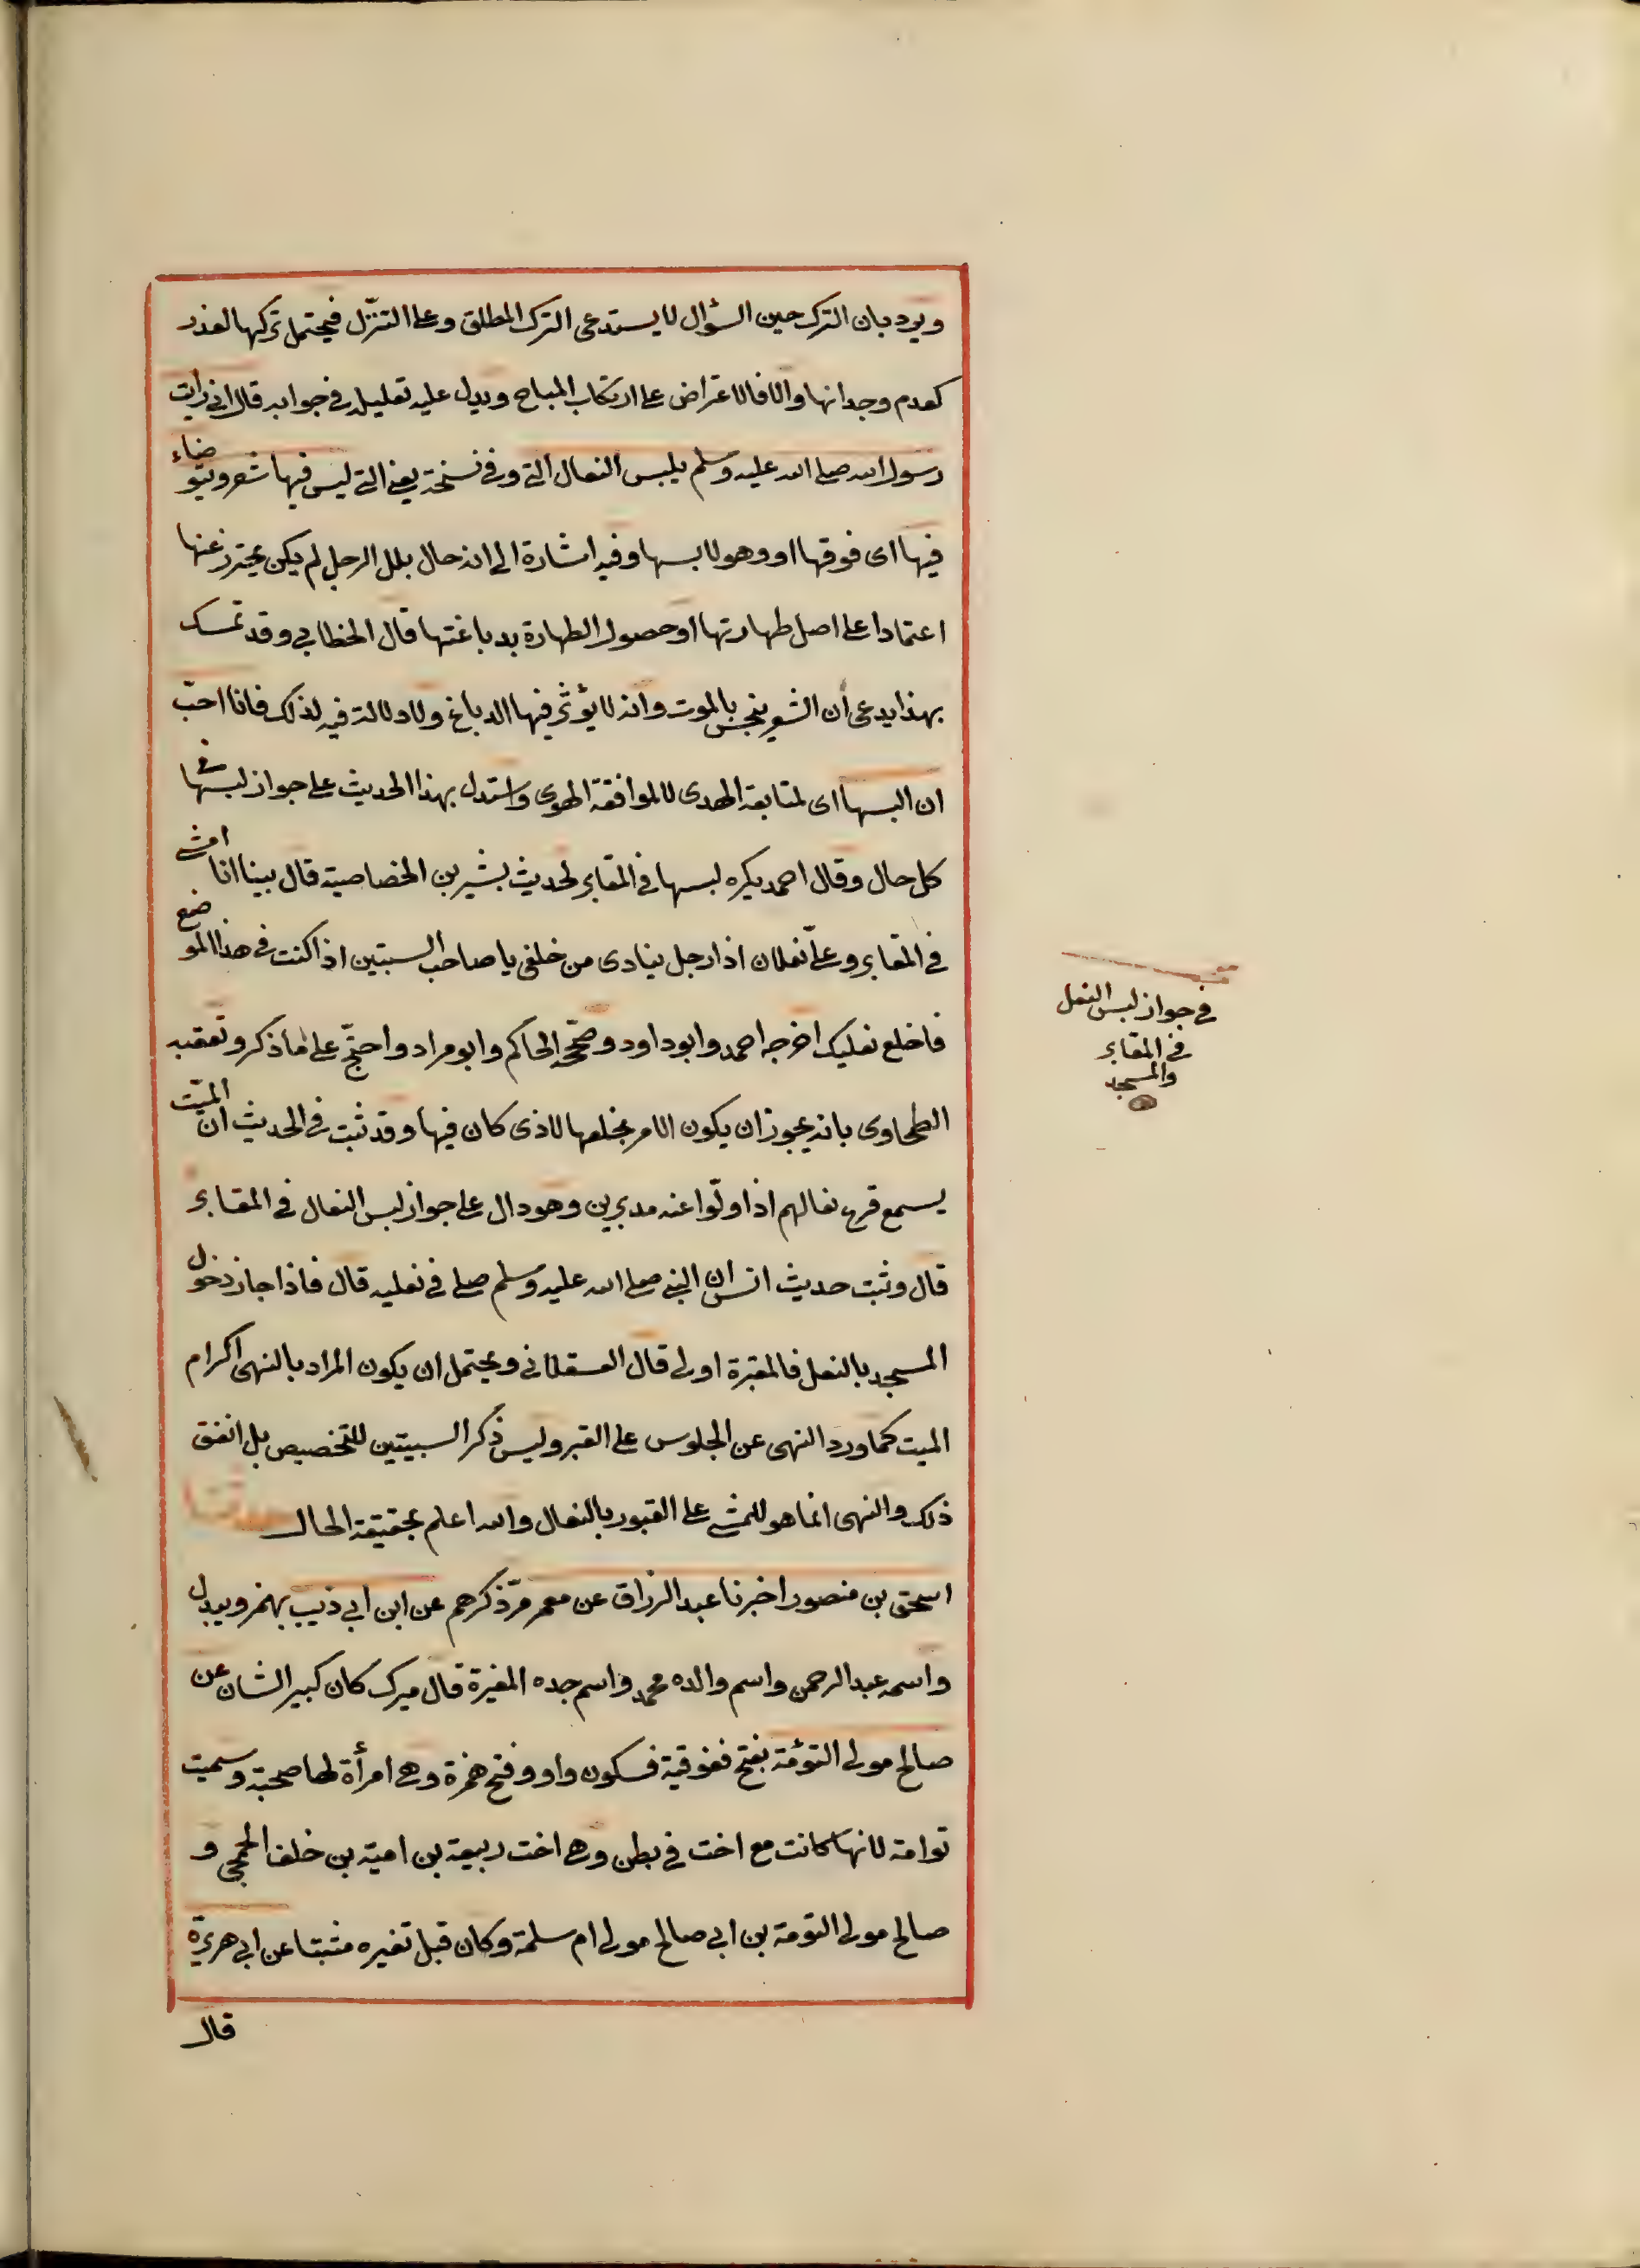 ويرد بان الترك حين السؤال لا يستدعى الترك المطلق وعلى التنزّل فيحتمل تركها لعذر
كعدم وجدانها والا فالاعتراض على ارتكاب المباح ويدل عليه تعليله في جوابه قال انى رايت
رسول الله صلى الله عليه وسلم يلبس النعال التى وفى نسخة يعنى التى ليس فيها شعر ويتوضاء
فيها اى فوقها او وهو لابسها وفيه اشارة الى انه حال بلل الرجل لم يكن يحترز عنها
اعتمادا على اصل طهارتها او حصول الطهارة بدباغتها قال الخطابي وقد تمسك
بهذا يدعى أن الشعر ينجس بالموت وانه لا يؤثّر فيها الدباغ ولا دلالة فيه لذلك فانا احبّ
ان البسها اى لمتابعة الهدى لا لموافقة الهوى واستدل بهذا الحديث على جواز لبسها فى
كل حال وقال احمد يكره لبسها في المقابر لحديث بشير بن الخصاصية قال بينا انا امشى
في المقابر وعلىّ نعلان اذا رجل ينادى من خلفى يا صاحب السبتين اذا كنت في هذا الموضع
فاخلع نعليك اخرجه احمد وابو داود وصحّحه الحاكم وابو مراد واحتجّ على ما ذكر وتعقبه
الطحاوى بانه يجوز ان يكون الامر بخلعها لاذى كان فيها وقد ثبت في الحديث ان الميّت
يسمع قرع نعالهم اذا ولّوا عنه مدبرين وهو دال على جواز لبس النعال في المقابر
قال وثبت حديث انس ان النبي صلى الله عليه وسلم صلى في نعليه قال فاذا جاز دخول
المسجد بالنعل فالمقبرة اولى قال العسقلانى ويحتمل ان يكون المراد بالنهى اكرام
الميت كما ورد النهى عن الجلوس على القبر وليس ذكر السبتيتين للتخصيص بل اتفق
ذلك والنهى انما هو للمشى على القبور بالنعال والله اعلم بحقيقة الحال حدثنا
اسحق بن منصور اخبرنا عبد الرزاق عن معمر مرّ ذكرهم عن ابن ابي ذيب بهمز ويبدل
واسمه عبد الرحمن واسم والده محمد واسم جده المغيرة قال ميرك كان كبير الشان عن
صالح مولى التوئمة بفتح ففوقية فسكون واو وفتح همزة وهى امرأة لها صحبة وسميت
توامة لانها كانت مع اخت في بطن وهى اخت ربيعة بن امية بن خلف الجمحى و
صالح مولى التومة بن ابي صالح مولى ام سلمة وكان قبل تغيره مثبتا عن ابي هريرة
قال
في جواز لبس النعل
في المقابر
والمسجد